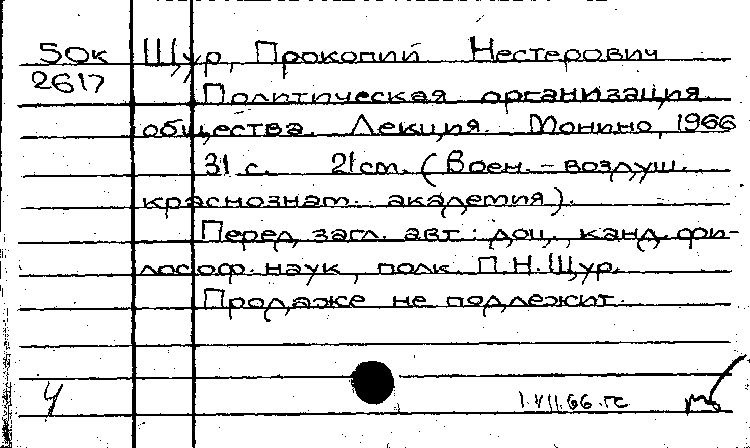 50к Щур, Прокопий Нестерович
2617
Политическая организация
общества. Лекция. Монино, 1966
31 с. 21 см. (Воен. - воздуш.
краснознам. академия).
Перед загл. авт.: доц., канд. фи-
лософ. наук, полк. П.Н.Щур.
Продаже не подлежит.
1.VII.66.гс